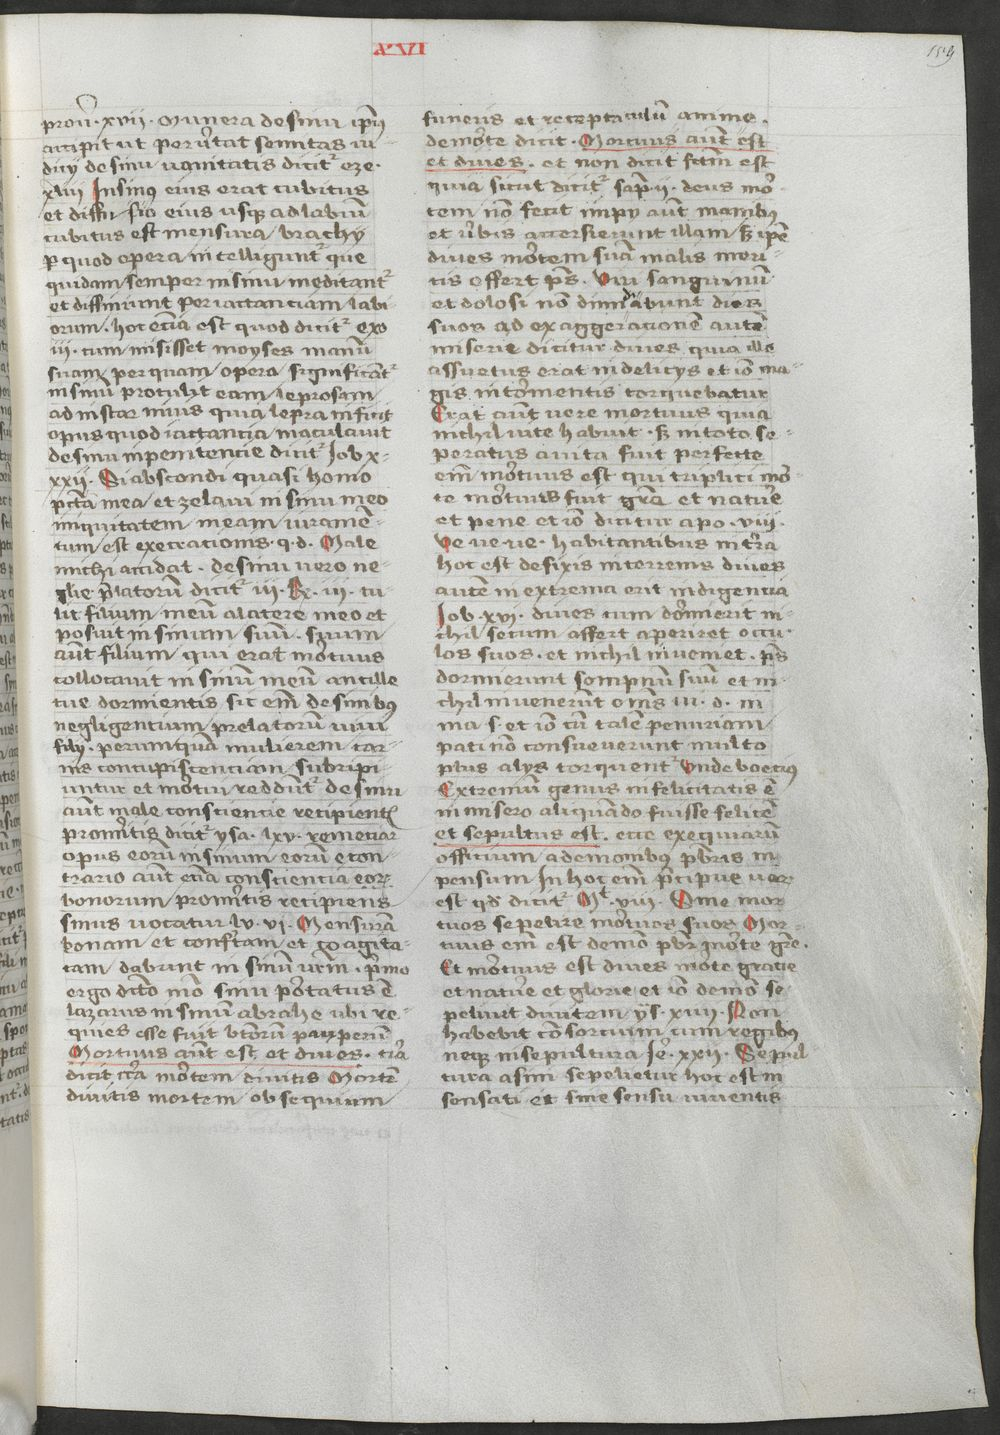 XVI
159
prou͛ · xvii · Munera de sinu ip̄iꝰ
accipit ut peru͛tat semitas iu-
dicij de sinu uanitatis dicit᷑ eze ·
xviii In sinuꝰ eius erat cubitus
et diffi sio eius usqꝫ ad labiū
cubitus est mensura brachij
ꝑ quod opera intelligunt᷑ que
quidam semper in sinu meditant᷑
et diffiniunt per iactanciam labi
orum · hoc ecīa est quod dicit᷑ exo
iii · cum misisset moyses manū
suam per quam opera significāt᷑
in sinū protulit eam leprosam
ad instar niuis quia lepra inficit
opus quod iactancia maculauit
de sinu inpenitencie dicit᷑ Iob x-
xxii · Si abscondi quasi homo
pctā mea et zelaui in sinu meo
iniquitatem meam iuramē-
tum est execracionis · q · d · Male
michi accidat · de sinu uero ne-
glie p̄latorū dicit᷑ iii · R̄ · iii · tu-
lit filium meū a latere meo et
posuit in sinum suū · suum
aūt filium qui erat mortuus
collocauit in sinū meū ancille
tue dormientis sic em̄ de sinibꝰ
negligencium prelatorū uiui
filij · per umquā mulierem car-
nis concupiscenciam subripi
untur et mortui reddūt᷑ de sinu
aūt male consciencie recipientē
promissis dicit᷑ ysa · lxv · remeciar
opus eorū in sinum eorū econ-
trario aūt ecīa consciencia eor
bonorum promissis recipiens
sinus uocatur lv · vi · Mensurā
bonam et confertam et coagita-
tam dabunt in sinū ur̄m · p̄mo
ergo dicto mō sinu portatus ē
lazarus in sinū abrahe ubi re-
quies esse fuit btōrum pauperū
Mortuus aūt est et diues · cīa
dicit cīra mortem diuitis Mortē
diuitis mortem obsequium
funeris et receptaculū anime ·
de morte dicit · Mortuus aūt est
et diues · et non dicit fctm est
quia sicut dicit᷑ sap̄ ii · deus mor-
tem nō fecit impij aūt manibꝰ
et u͛bis accersierunt illam sꝫ ip̄e
diues mortem suā malis meri-
tis offert p̄s · Uiri sanguinū
et dolosi nō dimidiabunt dies
suos ad exaggeracionē autē
miserie dicitur diues quia ille
assuetus erat in delicijs et iō ma-
gis in tormentis torquebatur
Erat aūt uere mortuus quia
nichil uite habuit · sꝫ in toto se-
peratus a uita fuit perfecte
em̄ mortuus est qui triplici mor-
te mortuus fuit gr̄e et nature
et pene et iō dicitur apo · viii ·
Ve ve ve · habitantibus in tr̄a
hoc est defixis in terrenis diues
autē in extrema erit indigencia
Iob · xvi · diues cum dormierit ni-
chil secum affert aperiret occu-
los suos · et nichil inueniet · p̄s
dormierunt sompnū suū et ni-
chil inuenerūt om̄s iii · d · in
ma s · et iō cū talē penuriam
pati nō consueuerunt multo
plus alijs torquent᷑ Unde boeciꝰ
Extremū genus infelicitatis ē
in misero aliquādo fuisse felicē
et sepultus est · ecce exequiarū
officium a demonibus pbris in-
pensum In hoc em̄ p̄cipue uer
est qd̄ dicit᷑ Mt̄ · viii · Sine mor
tuos sepelire mortuos suos Mor-
tuus em̄ est demō pbr morte gr̄e ·
Et mortuus est diues morte gracie
et nature et glorie et iō demō se-
peliuit diuitem ys · xiiii · Non
habebit cōsortium cum regibꝰ
neqꝫ in sepultura Ie͛ · xxii · Sepul
tura asini sepelietur hoc est in
sensati et sine sensu uiuentis